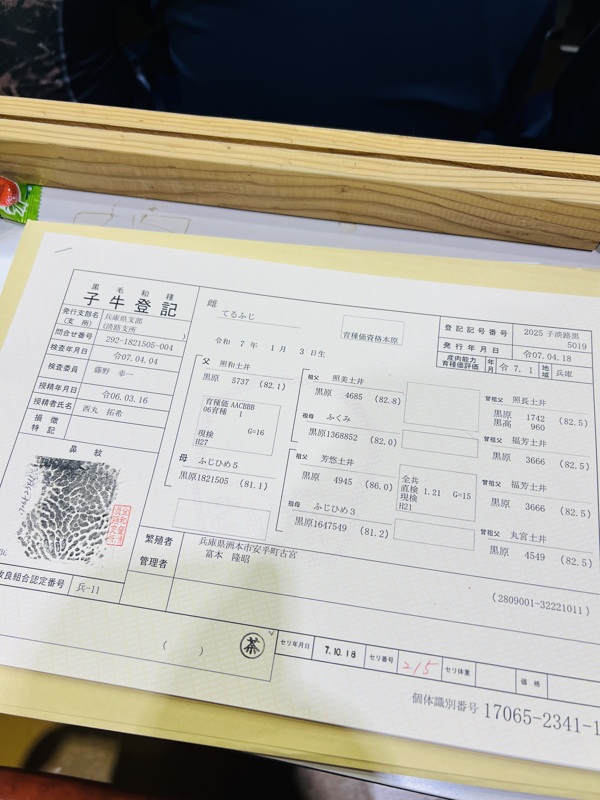 黒毛和種
子牛登記
発行支部名 兵庫県支部
(支所) (淡路支所)
問合せ番号 292-1821505-004
検査年月日 令07.04.04
検査委員 藤野 幸一
授精年月日 令06.03.16
授精者氏名 西丸 拓希
損徴
特記
鼻紋
改良組合認定番号 兵-11
雌
てるふじ
令和 7年 1月 3日生
育種価資格本原
登記記号番号 2025 子淡路黒
5019
発行年月日 令07.04.18
産肉能力
育種価評価 年月 令 7. 1 地域 兵庫
父 照和土井
黒原 5737 (82.1)
育種価 AACBBB
06育種 1
現検 G=16
H27
母 ふじひめ5
黒原1821505 (81.1)
祖父 照美土井
黒原 4685 (82.8)
祖母 ふくみ
黒原1368852 (82.0)
祖父 芳悠土井
黒原 4945 (86.0)
全共
直検 1.21 G=15
現検
H21
祖母 ふじひめ3
黒原1647549 (81.2)
曾祖父 照長土井
黒原 1742 (82.5)
黒高 960
曾祖父 福芳土井
黒原 3666 (82.5)
曾祖父 福芳土井
黒原 3666 (82.5)
曾祖父 丸宮土井
黒原 4549 (82.5)
繁殖者 兵庫県洲本市安乎町古宮
富本 隆昭
管理者
(2809001-32221011)
( )
茶
セリ年月日 7.10.18 セリ番号 215 セリ体重 価格
個体識別番号 17065-2341-1